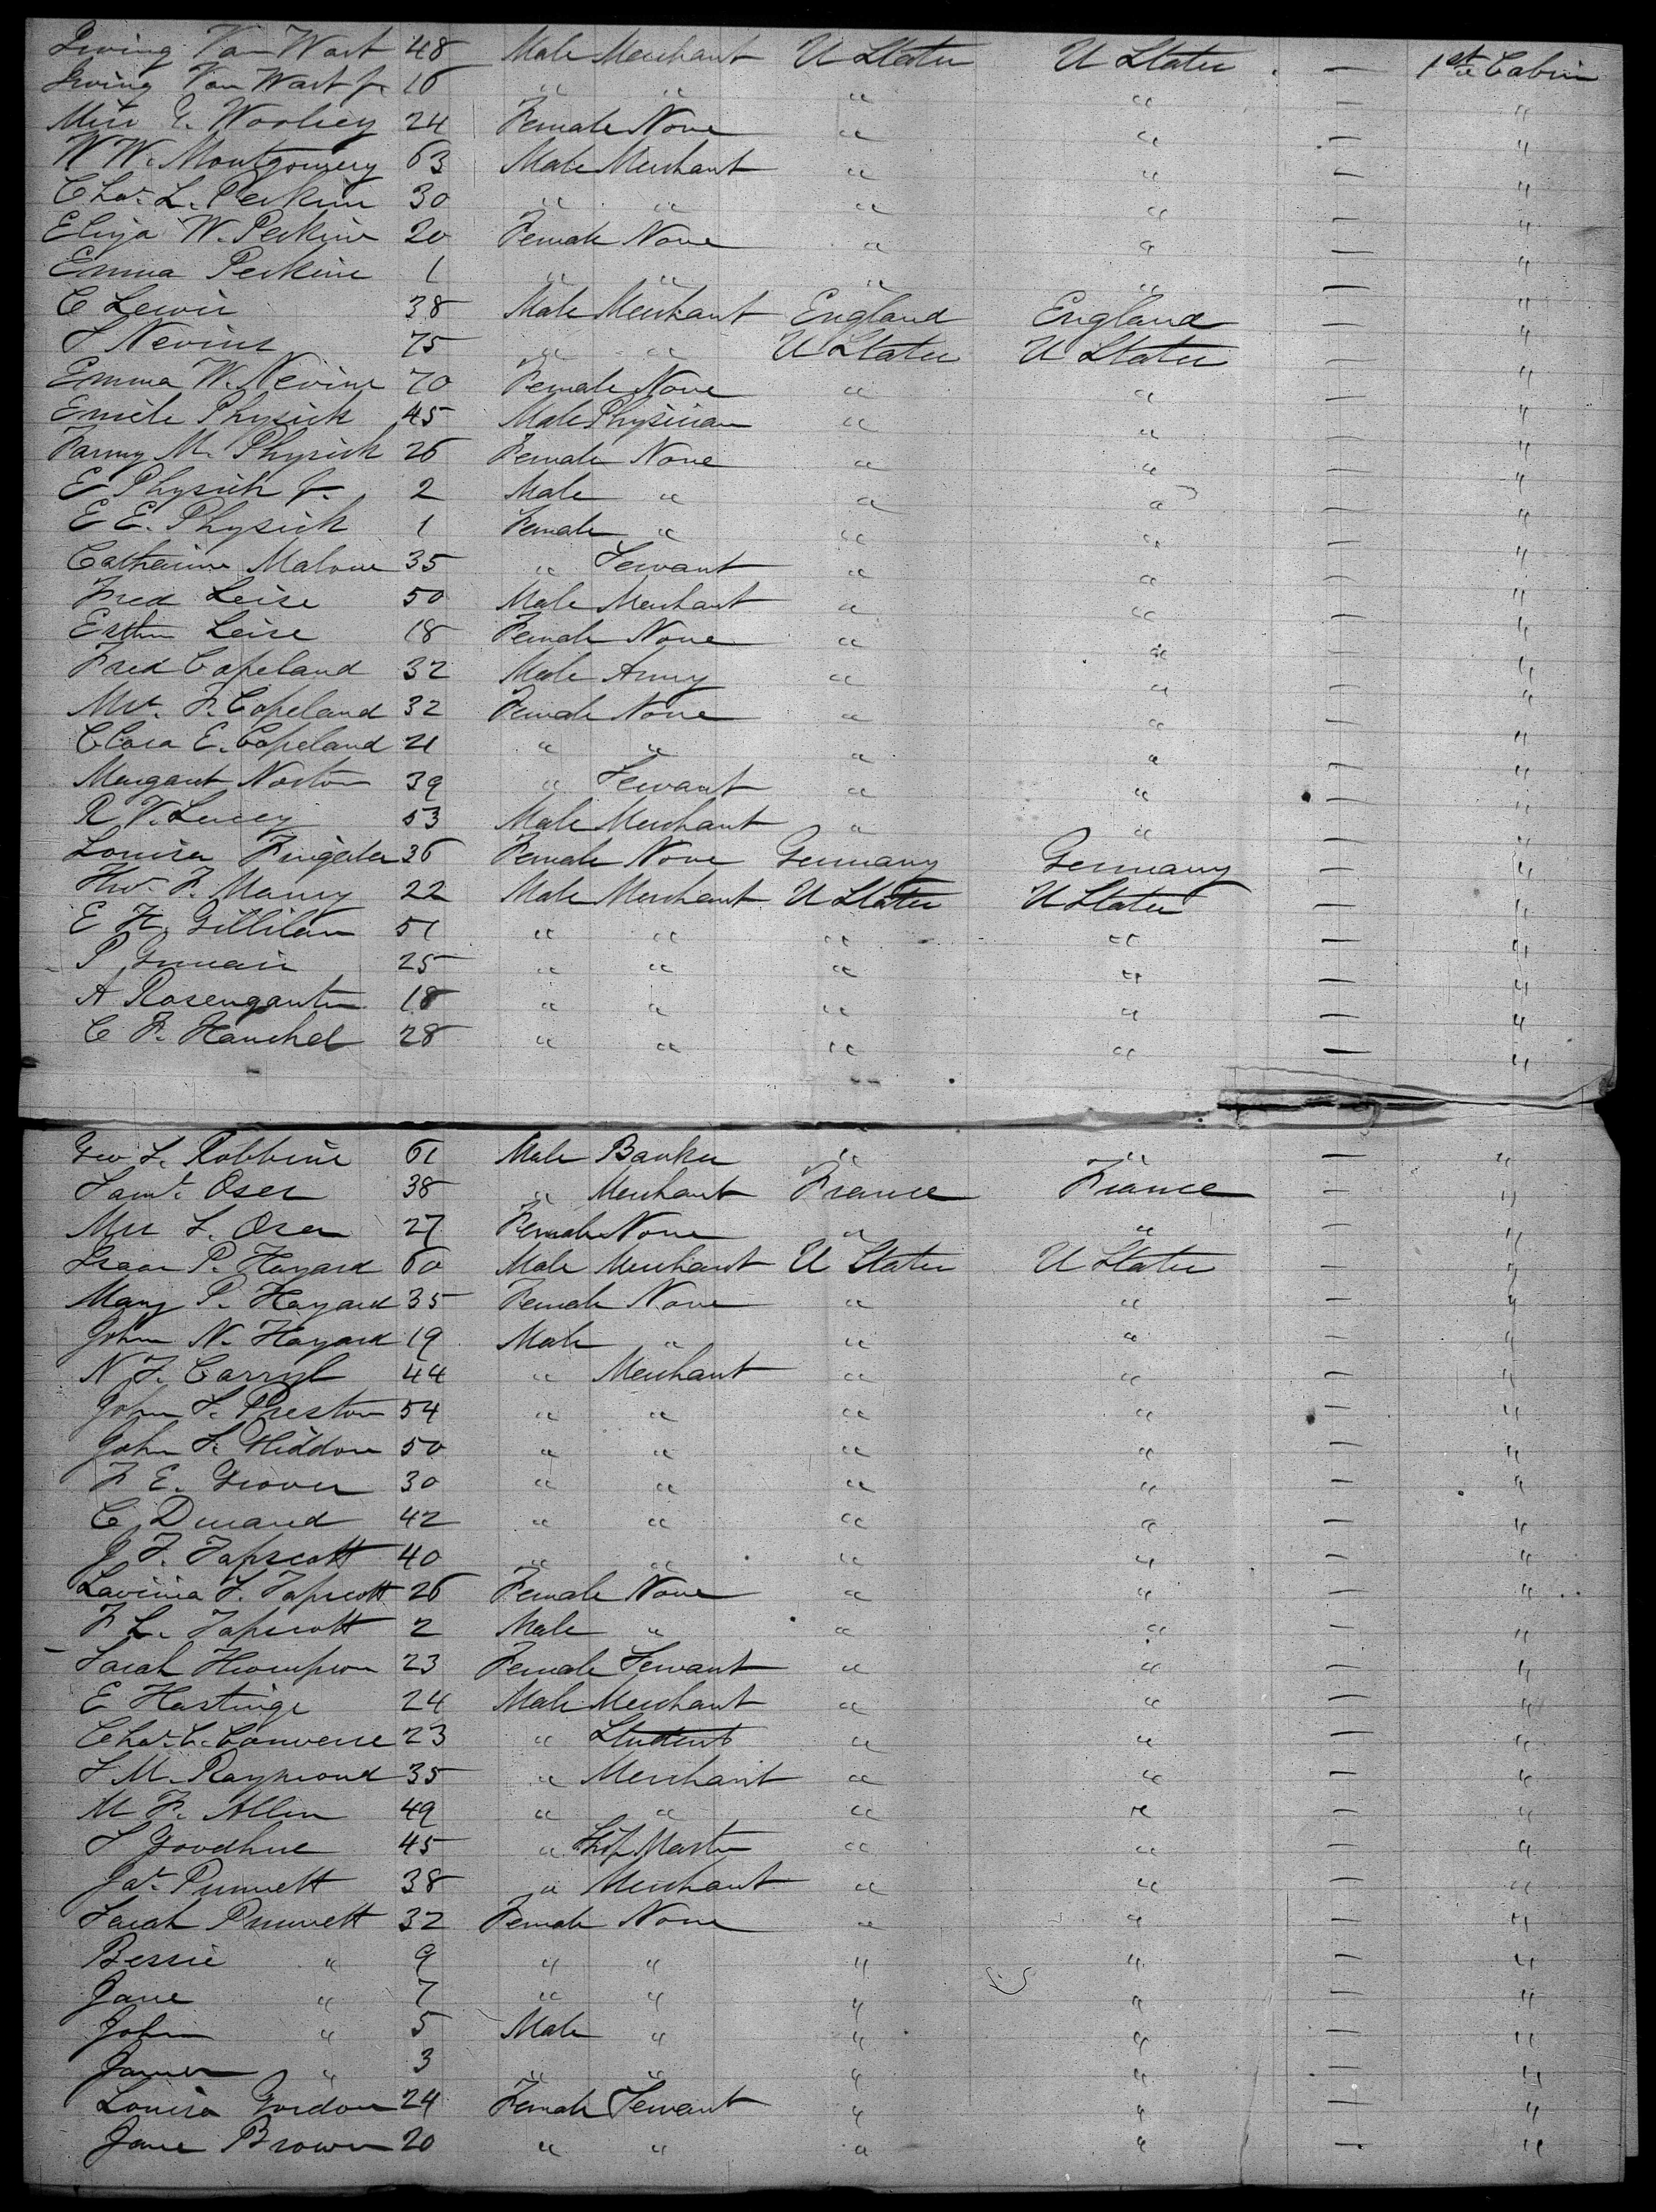 Irving Van Wart 48 Male Merchant U States U States — 1st Cabin
Irving Van Wart Jr. 16 " " " " — "
Miss E. Woolsey 24 Female None " " — "
W W. Montgomery 63 Male Merchant " " — "
Chas. L. Perkins 30 " " " " — "
Eliza W. Perkins 20 Female None " " — "
Emma Perkins 1 " " " " — "
C Lewis 38 Male Merchant England England — "
S Nevins 75 " " U States U States — "
Emma W. Nevins 70 Female None " " — "
Emile Physick 45 Male Physician " " — "
Fanny M. Physick 26 Female None " " — "
E Physick Jr. 2 Male " " " — "
E E. Physick 1 Female " " " — "
Catharine Malone 35 " Servant " " — "
Fred Leise 50 Male Merchant " " — "
Esther Leise 18 Female None " " — "
Fred Copeland 32 Male Army " " — "
Mrs. F. Copeland 32 Female None " " — "
Clara E. Copeland 21 " " " " — "
Margaret Norton 39 " Servant " " — "
R V. 53 Male Merchant " " — "
Louisa 36 Female None Germany Germany — "
Thos. F. Maury 22 Male Merchant U States U States — "
E H. Gillilan 51 " " " " — "
P 25 " " " " — "
A Rosengarten 18 " " " " — "
C F. Hanchel 28 " " " " — "
Geo S. Robbins 61 Male Banker " " — "
Saml. Oser 38 " Merchant France France — "
Mrs S. Oser 27 Female None " " — "
Isaac P. Hazard 60 Male Merchant U States U States — "
Mary P. Hazard 35 Female None " " — "
John N. Hazard 19 Male " " " — "
N F. Carryl 44 " Merchant " " — "
John S. Preston 54 " " " " — "
John S. 50 " " " " — "
F E. Grover 30 " " " " — "
C Durand 42 " " " " — "
J T. Tapscott 40 " " " " — "
Lavinia F. Tapscott 26 Female None " " — "
F L. Tapscott 2 Male " " " — "
Sarah Thompson 23 Female Servant " " — "
E Hastings 24 Male Merchant " " — "
Chas. C. Converse 23 " Student " " — "
S M. Raymond 35 " Merchant " " — "
M F. Allen 49 " " " " — "
S Goodhue 45 " Ship Master " " — "
Jas. Punnett 38 " Merchant " " — "
Sarah Punnett 32 Female None " " — "
Bessie " 9 " " " " — "
Jane " 7 " " " " — "
John " 5 Male " " " — "
James " 3 " " " " — "
Louisa Gordon 24 Female Servant " " — "
Jane Brown 20 " " " " — "